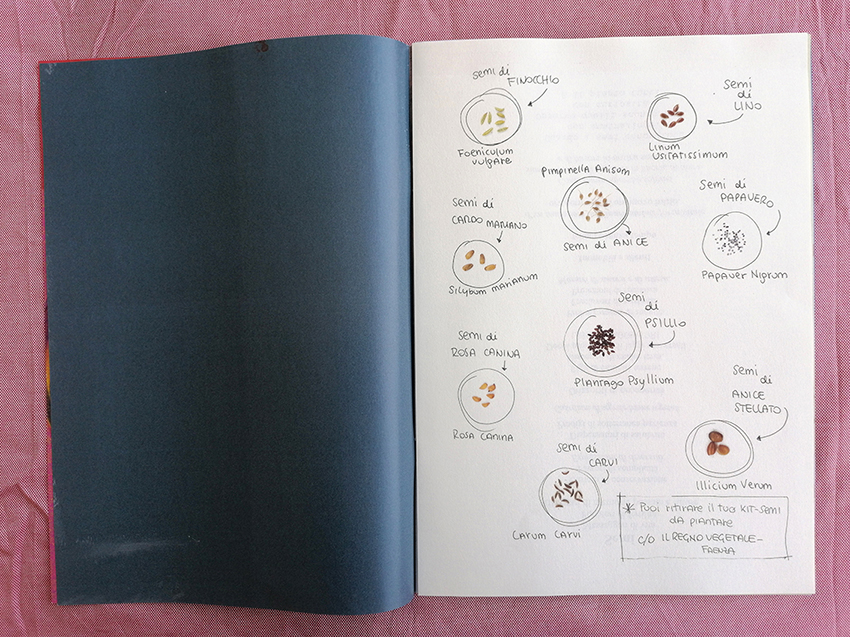 semi di
FINOCCHIO
Foeniculum
vulgare
semi
di
LINO
Linum
Usitatissimum
Pimpinella Anisum
semi di ANICE
semi di
CARDO MARIANO
Silybum marianum
semi di
PAPAVERO
Papaver Nigrum
semi
di
PSILLIO
Plantago Psyllium
semi di
ROSA CANINA
ROSA CANINA
semi
di
ANICE
STELLATO
Illicium Verum
semi di
CARVI
Carum Carvi
* Puoi ritirare il tuo KIT-semi
da piantare
c/o IL REGNO VEGETALE -
FAENZA